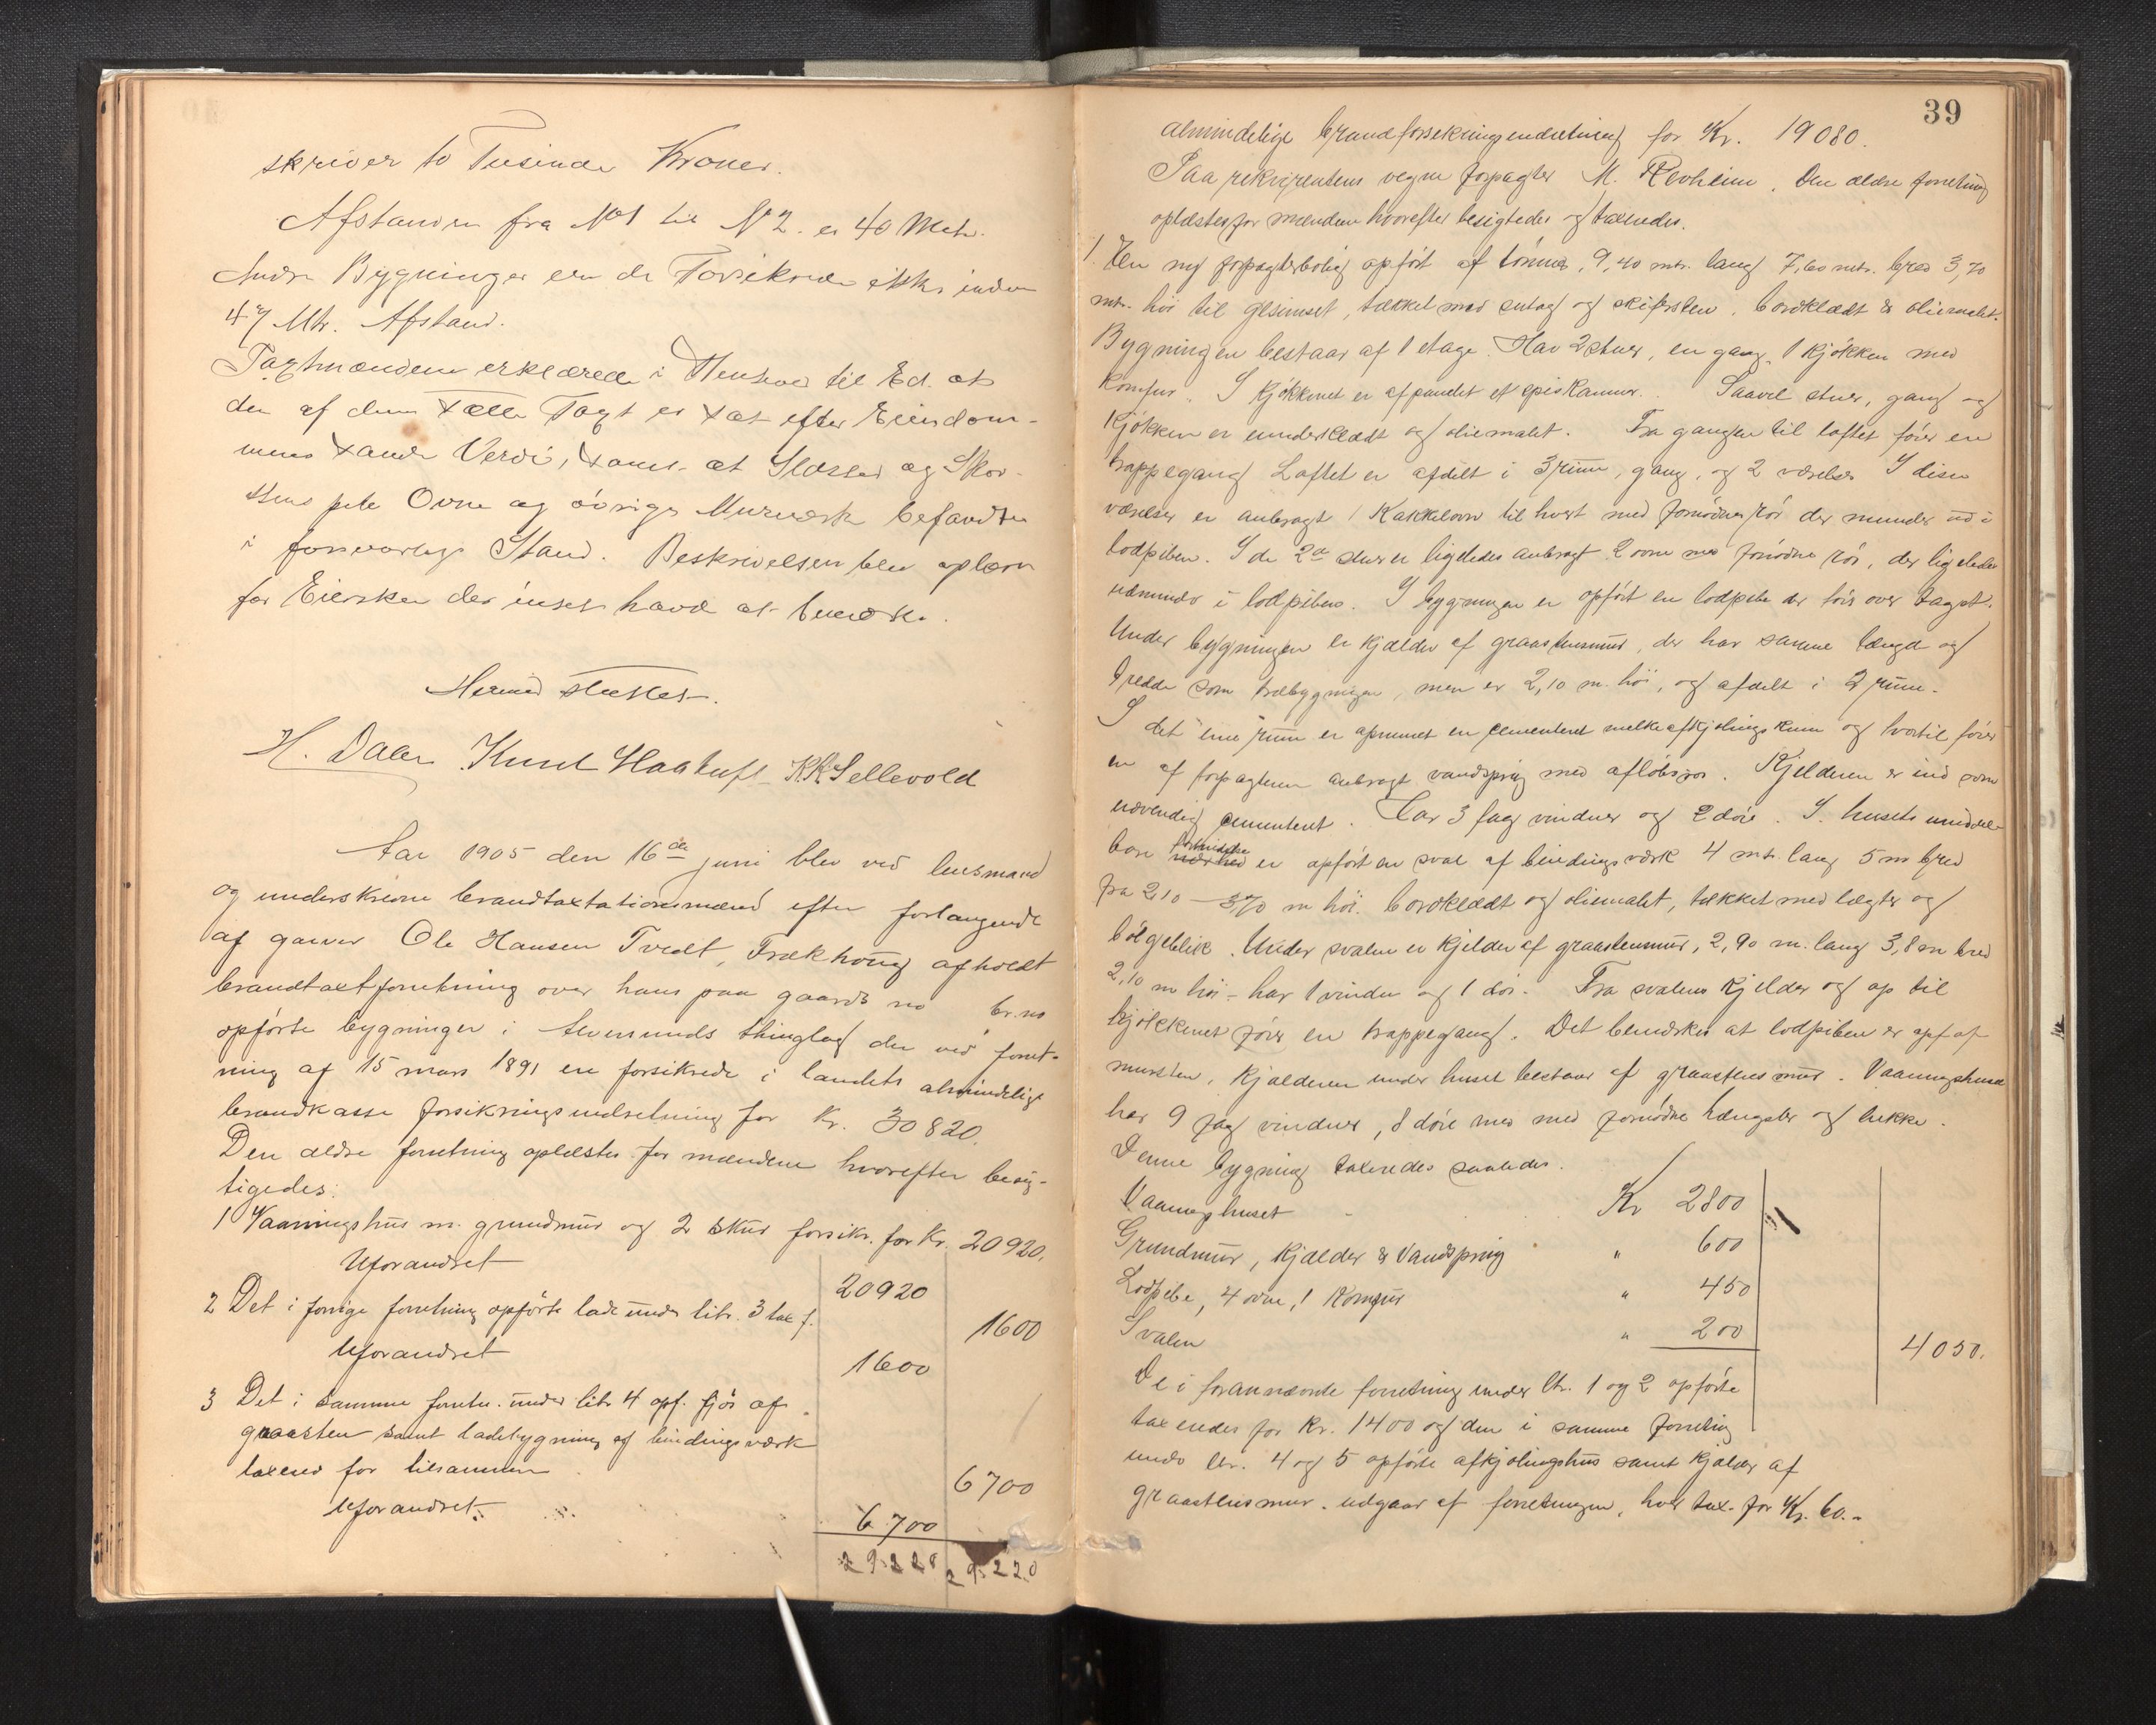 skriver to Tusinde Kroner.
Afstanden fra No 1 til No 2. er 40 Metr.
Andre Bygninger end de Forsikrede ikke inden
47 Mtr. Afstand.
Taxtmændene erklærede i Henhold til Ed. at
den af dem satte Taxt er sat efter Eiendom-
mens sande Verdi, samt at Ildsted og Skor-
stens pibe Ovne og øvrige Murværk befandtes
i forsvarlige Stand. Beskrivelsen blev oplæst
for Eiersken der intet havde at bemærke.
H. Dalen Knud Haaheft K.K. Sellevold
Aar 1905 den 16de juni blev ved lensmand
og underskrevne brandtaxtationsmænd efter forlangende
af garver Ole Hansen Tvedt, Frækhoug afholdt
brandtaxtforretning over hans paa gaards no br.no
opførte bygninger i thinglag der ved forret-
ning af 15 mars 1891 ere forsikrede i landets almindelige
brandkasse forsikringsindretning for Kr. 30820.
Den ældre forretning oplæstes for mændene hvorefter besig-
tigedes:
1 Vaaningshus m. grundmur og 2 skur forsikr. for Kr. 20920.
Uforandret
20920
2 Det i forrige forretning opførte lade under litr. 3 tax f.
1600
Uforandret
1600
3 Det i samme forretn. under litr 4 opf. fjøs af
graasten samt ladebygning af bindingsværk
taxeret for tilsammen
6700
Uforandret.
6700
29220 29220
39
almindelige brandforsikringsindretning for Kr. 19080.
Paa rekvirentens vegne forpagter M. Revheim. Den ældre forretning
oplæstes for mændene hvorefter besigtedes og taxeredes.
1. En ny forpagterbolig opført af tømmer, 9,40 mtr. lang 7,60 mtr. bred 3,70
mtr. høi til gesimset, tækket med sutag og skifersten, bordklædt & oliemalt.
Bygningen bestaar af 1 etage. Har 2 stuer, en gang, 1 kjøkken med
komfur. I kjøkkenet er afpanelet et spiskammer. Saavel stuer, gang og
kjøkken er underklædt og oliemalet. Fra gangen til loftet fører en
trappegang Loftet er afdelt i 3 rum, gang, og 2 værelser I disse
værelser er anbragt 1 Kakkelovn til hvert med fornødne rør der munder ud i
lodpiben. I de 2de stuer er ligeledes anbragt 2 ovne med fornødne rør, der ligeledes
udmunder i lodpiben. I bygningen er opført en lodpibe der fører over taget.
Under bygningen er kjælder af graastensmur, der har samme længde og
bredde som træbygningen, men er 2,10 m. høi, og afdelt i 2 rum.
I det ene rum er opmuret en cementeret melkeafkjølings kum og hvortil fører
en af forpagteren anbragt vandspring med afløbsrør. Kjelderen er ind som
udvendig cementeret. Har 3 fag vinduer og 2 døre. I husets umiddel-
bare nærhed er opført en sval af bindingsværk 4 mtr. lang 5 m bred
fra 2,10 - 3,70 m høi. bordklædt og oliemalet, tækket med lægter og
bølgeblik. Under svalen er kjelder af graastenmur, 2,90 m. lang 3,8 m bred
2,10 m høi - har 1 vindu og 1 dør. Fra svalens kjelder og op til
kjøkkenet fører en trappegang. Det bemærkes at lodpiben er opf af
mursten, kjælderen under huset bestaar af graastens mur. Vaaningshuset
har 9 fag vinduer, 8 døre med med fornødne hængsler og lukke.
Denne bygning taxeredes saaledes.
Vaaningshuset - Kr 2800
Grundmur, kjælder & Vandspring " 600
Lodpibe, 4 ovne, 1 Komfur " 450
Svalen " 200
4050.
De i forannævnte forretning under ltr. 1 og 2 opførte
taxeredes for Kr. 1400 og den i samme forretning
under ltr. 4 og 5 opførte afkjølingshus samt kjælder af
graastensmur. udgaar af forretningen, hver tax. for Kr. 60.-